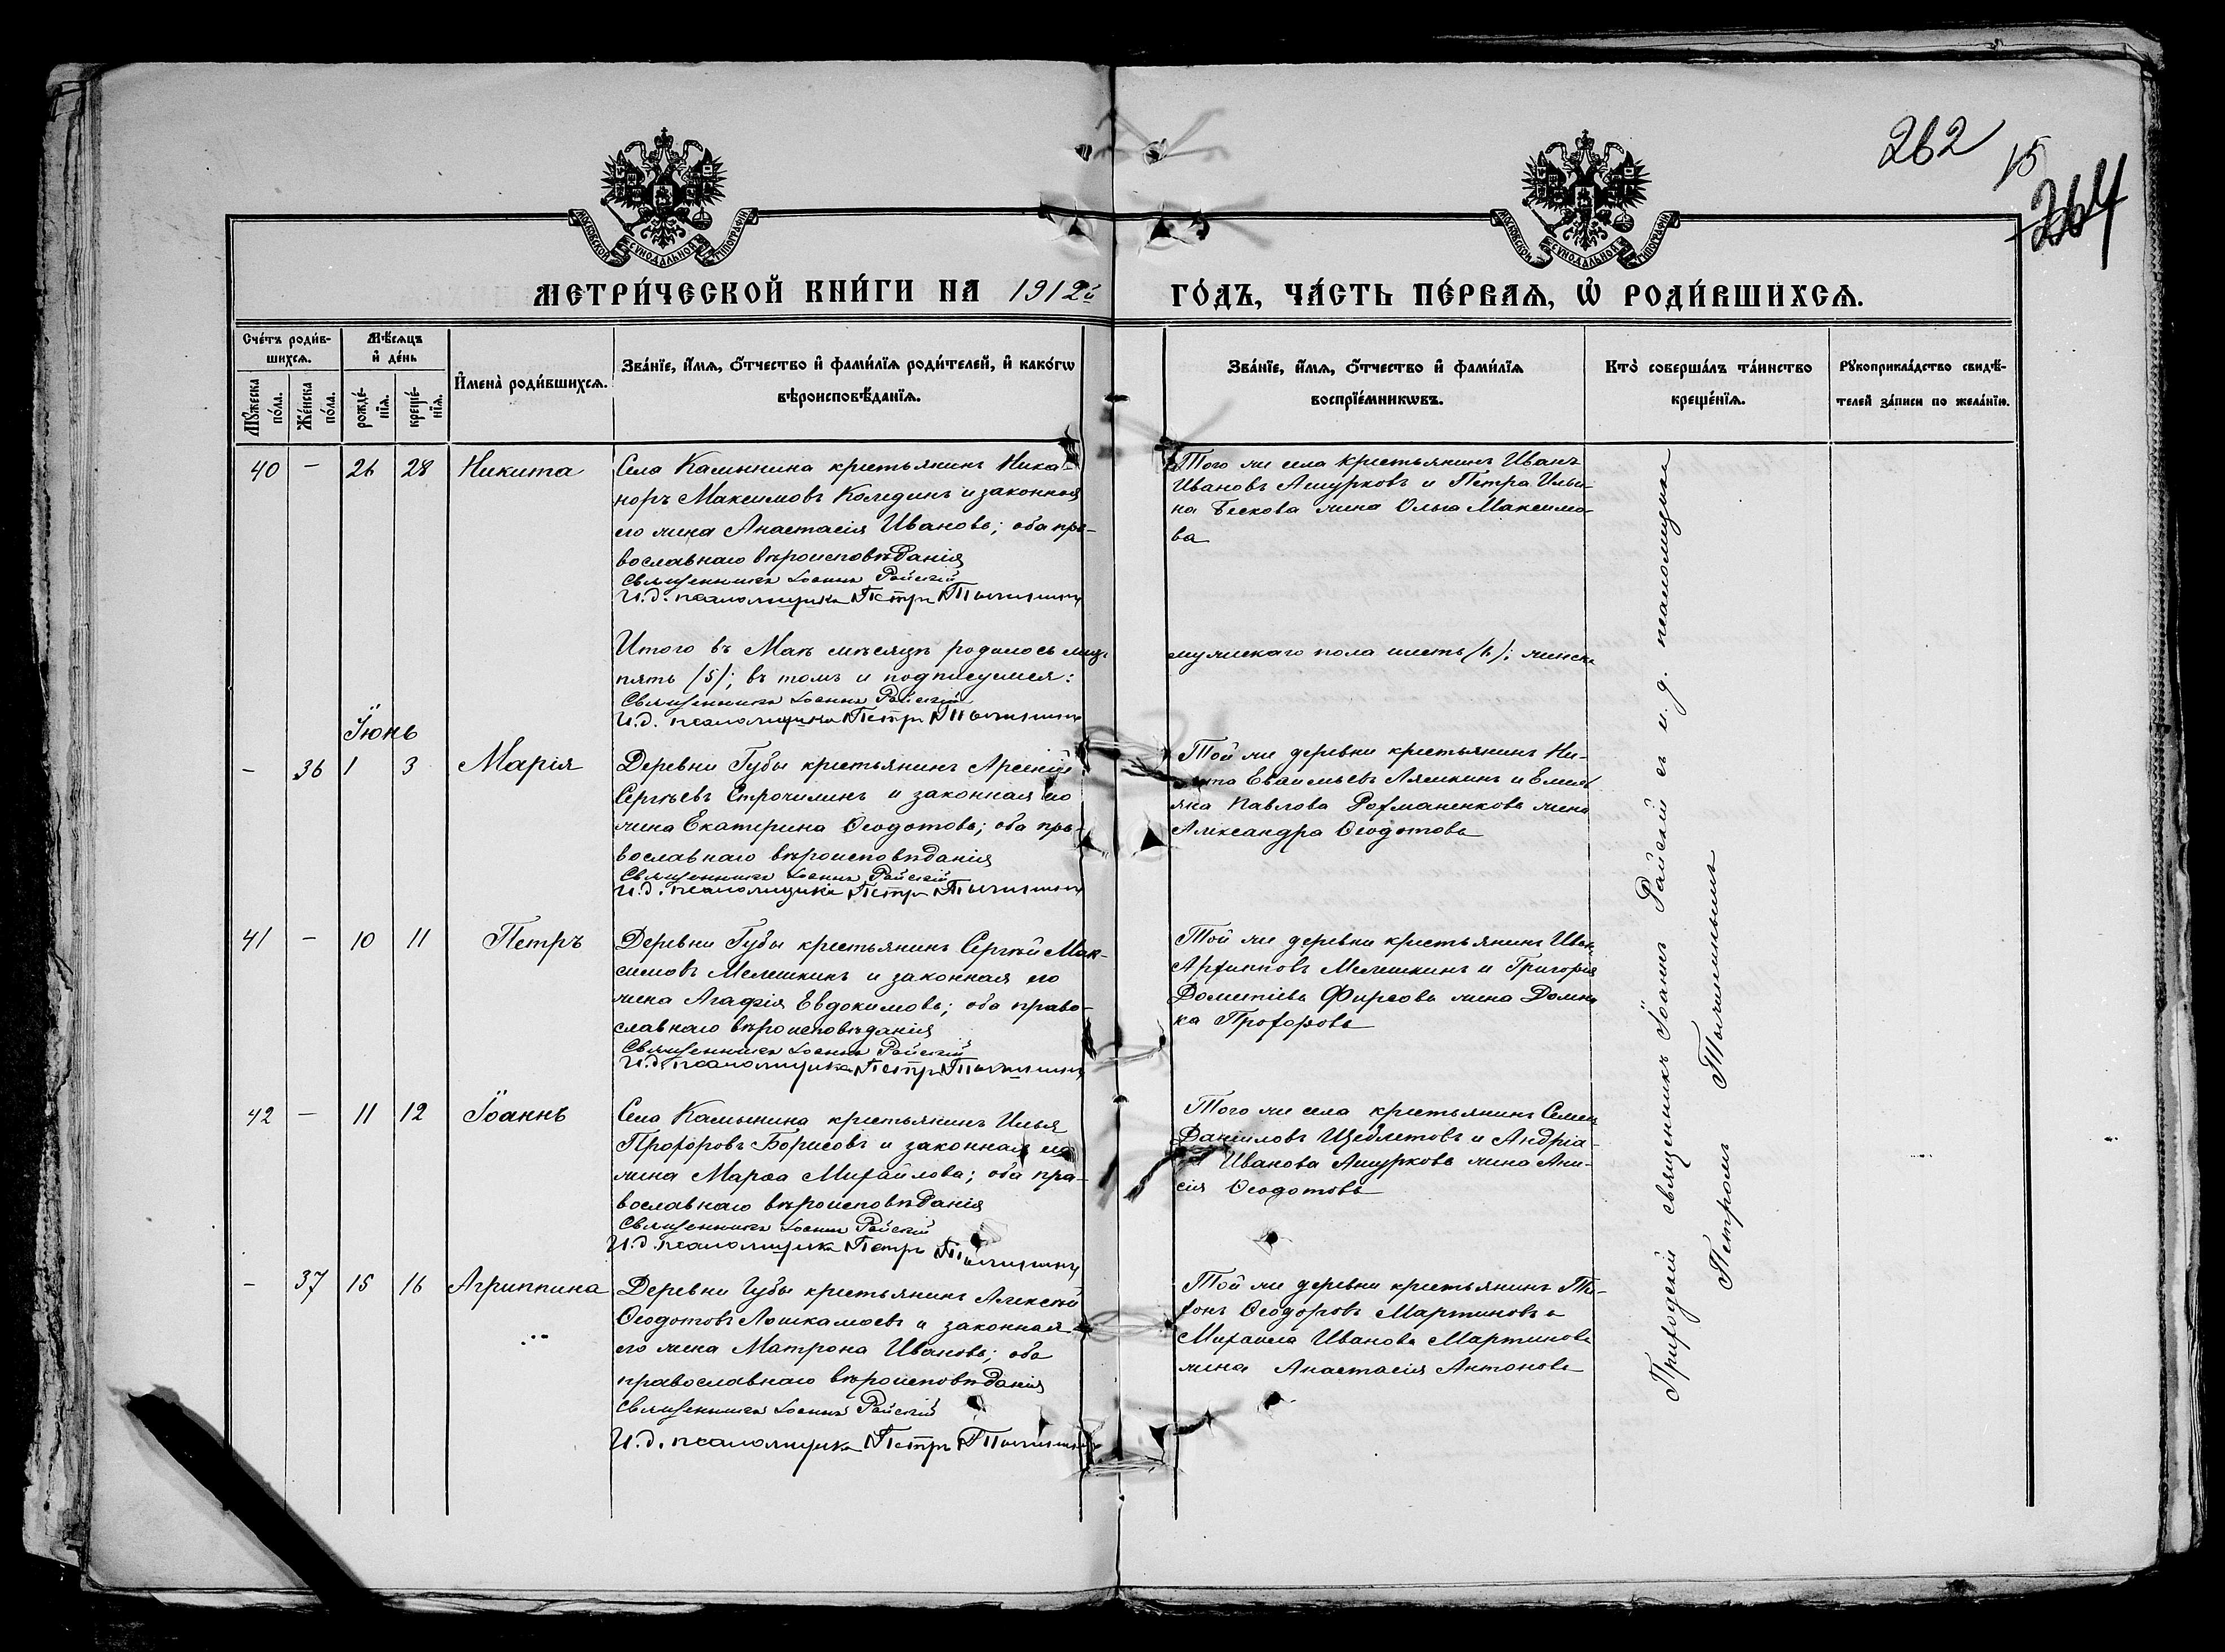 262
15
264
МОСКОВСКОЙ СѴНОДАЛЬНОЙ ТИПОГРАФІИ
МОСКОВСКОЙ СѴНОДАЛЬНОЙ ТИПОГРАФІИ
МЕТРИ́ЧЕСКОЙ КНИ́ГИ НА 1912й ГО́ДЪ, ЧА́СТЬ ПЕ́РВАЯ, Ѡ҆ РОДИ́ВШИХСЯ.
Сче́тъ роди́в-
шихся.
Мѣ́сяцъ
и҆ де́нь
Му́жеска
по́ла.
Же́нска
по́ла.
рожде́-
нїя.
креще́-
нїя.
И҆мена̀ роди́вшихся.
Зва́нїе, и҆́мя, о҆́тчество и҆ фами́лїя роди́телей, и҆ како́гѡ
вѣроисповѣ́данїя.
Зва́нїе, и҆́мя, о҆́тчество и҆ фами́лїя
воспрїе́мникѡвъ.
Кто̀ соверша́лъ та́инство
креще́нїя.
Рукоприкла́дство свидѣ́-
телей за́писи по жела́нїю.
40 — 26 28 Никита
Села Калинина крестьянинъ Ника-
норъ Максимовъ Коледин и законная
его жена Анастасія Иванова; оба пра-
вославнаго вѣроисповѣданія
Священникъ Іоаннъ Райскій
И.д. псаломщика Петръ
Того же села крестьянинъ Иванъ
Ивановъ Ашурковъ и Петра Ильи-
на Бескова жена Ольга Максимо-
ва
Итого въ Маѣ мѣсяцѣ родилось
мужскаго пола шесть (6); женска
пять (5); въ томъ и подписуемся:
Священникъ Іоаннъ Райскій
И.д. псаломщика Петръ
Іюнь
— 36 1 3 Марія
Деревни Губы крестьянинъ Арсеній
Сергѣевъ Строчилинъ и законная его
жена Екатерина Ѳеодотова; оба пра-
вославнаго вѣроисповѣданія
Священникъ Іоаннъ Райскій
И.д. псаломщика Петръ
Той же деревни крестьянинъ Ни-
кита Лямкинъ и Емиль
яна Павлова Рохманенкова жена
Александра Ѳеодотова
41 — 10 11 Петръ
Деревни Губы крестьянинъ Сергѣй Мак-
симовъ Мелешкинъ и законная его
жена Агафія Евдокимова; оба право-
славнаго вѣроисповѣданія
Священникъ Іоаннъ Райскій
И.д. псаломщика Петръ
Той же деревни крестьянинъ Иванъ
Архиповъ Мелешкинъ и Григорія
Фирсова жена Домни
ка Прохорова
42 — 11 12 Іоаннъ
Села Калинина крестьянинъ Илья
Прохоровъ Борисовъ и законная его
жена Марѳа Михайлова; оба пра-
вославнаго вѣроисповѣданія
Священникъ Іоаннъ Райскій
И.д. псаломщика Петръ
Того же села крестьянинъ Семенъ
Даніиловъ Щеблетовъ и Андріа-
Иванова Ашуркова жена Ани-
сія Ѳеодотова
— 37 15 16 Агриппина
Деревни Губы крестьянинъ Алексѣй
Ѳеодотовъ и законная
его жена Матрона Иванова; оба
православнаго вѣроисповѣданія
Священникъ Іоаннъ Райскій
И.д. псаломщика Петръ
Той же деревни крестьянинъ Ти-
хонъ Ѳеодоровъ Мартиновъ и
Михаила Иванова Мартинова
жена Анастасія Антонова
Приходскій священникъ Іоаннъ Райскій съ и. д. псаломщика
Петромъ